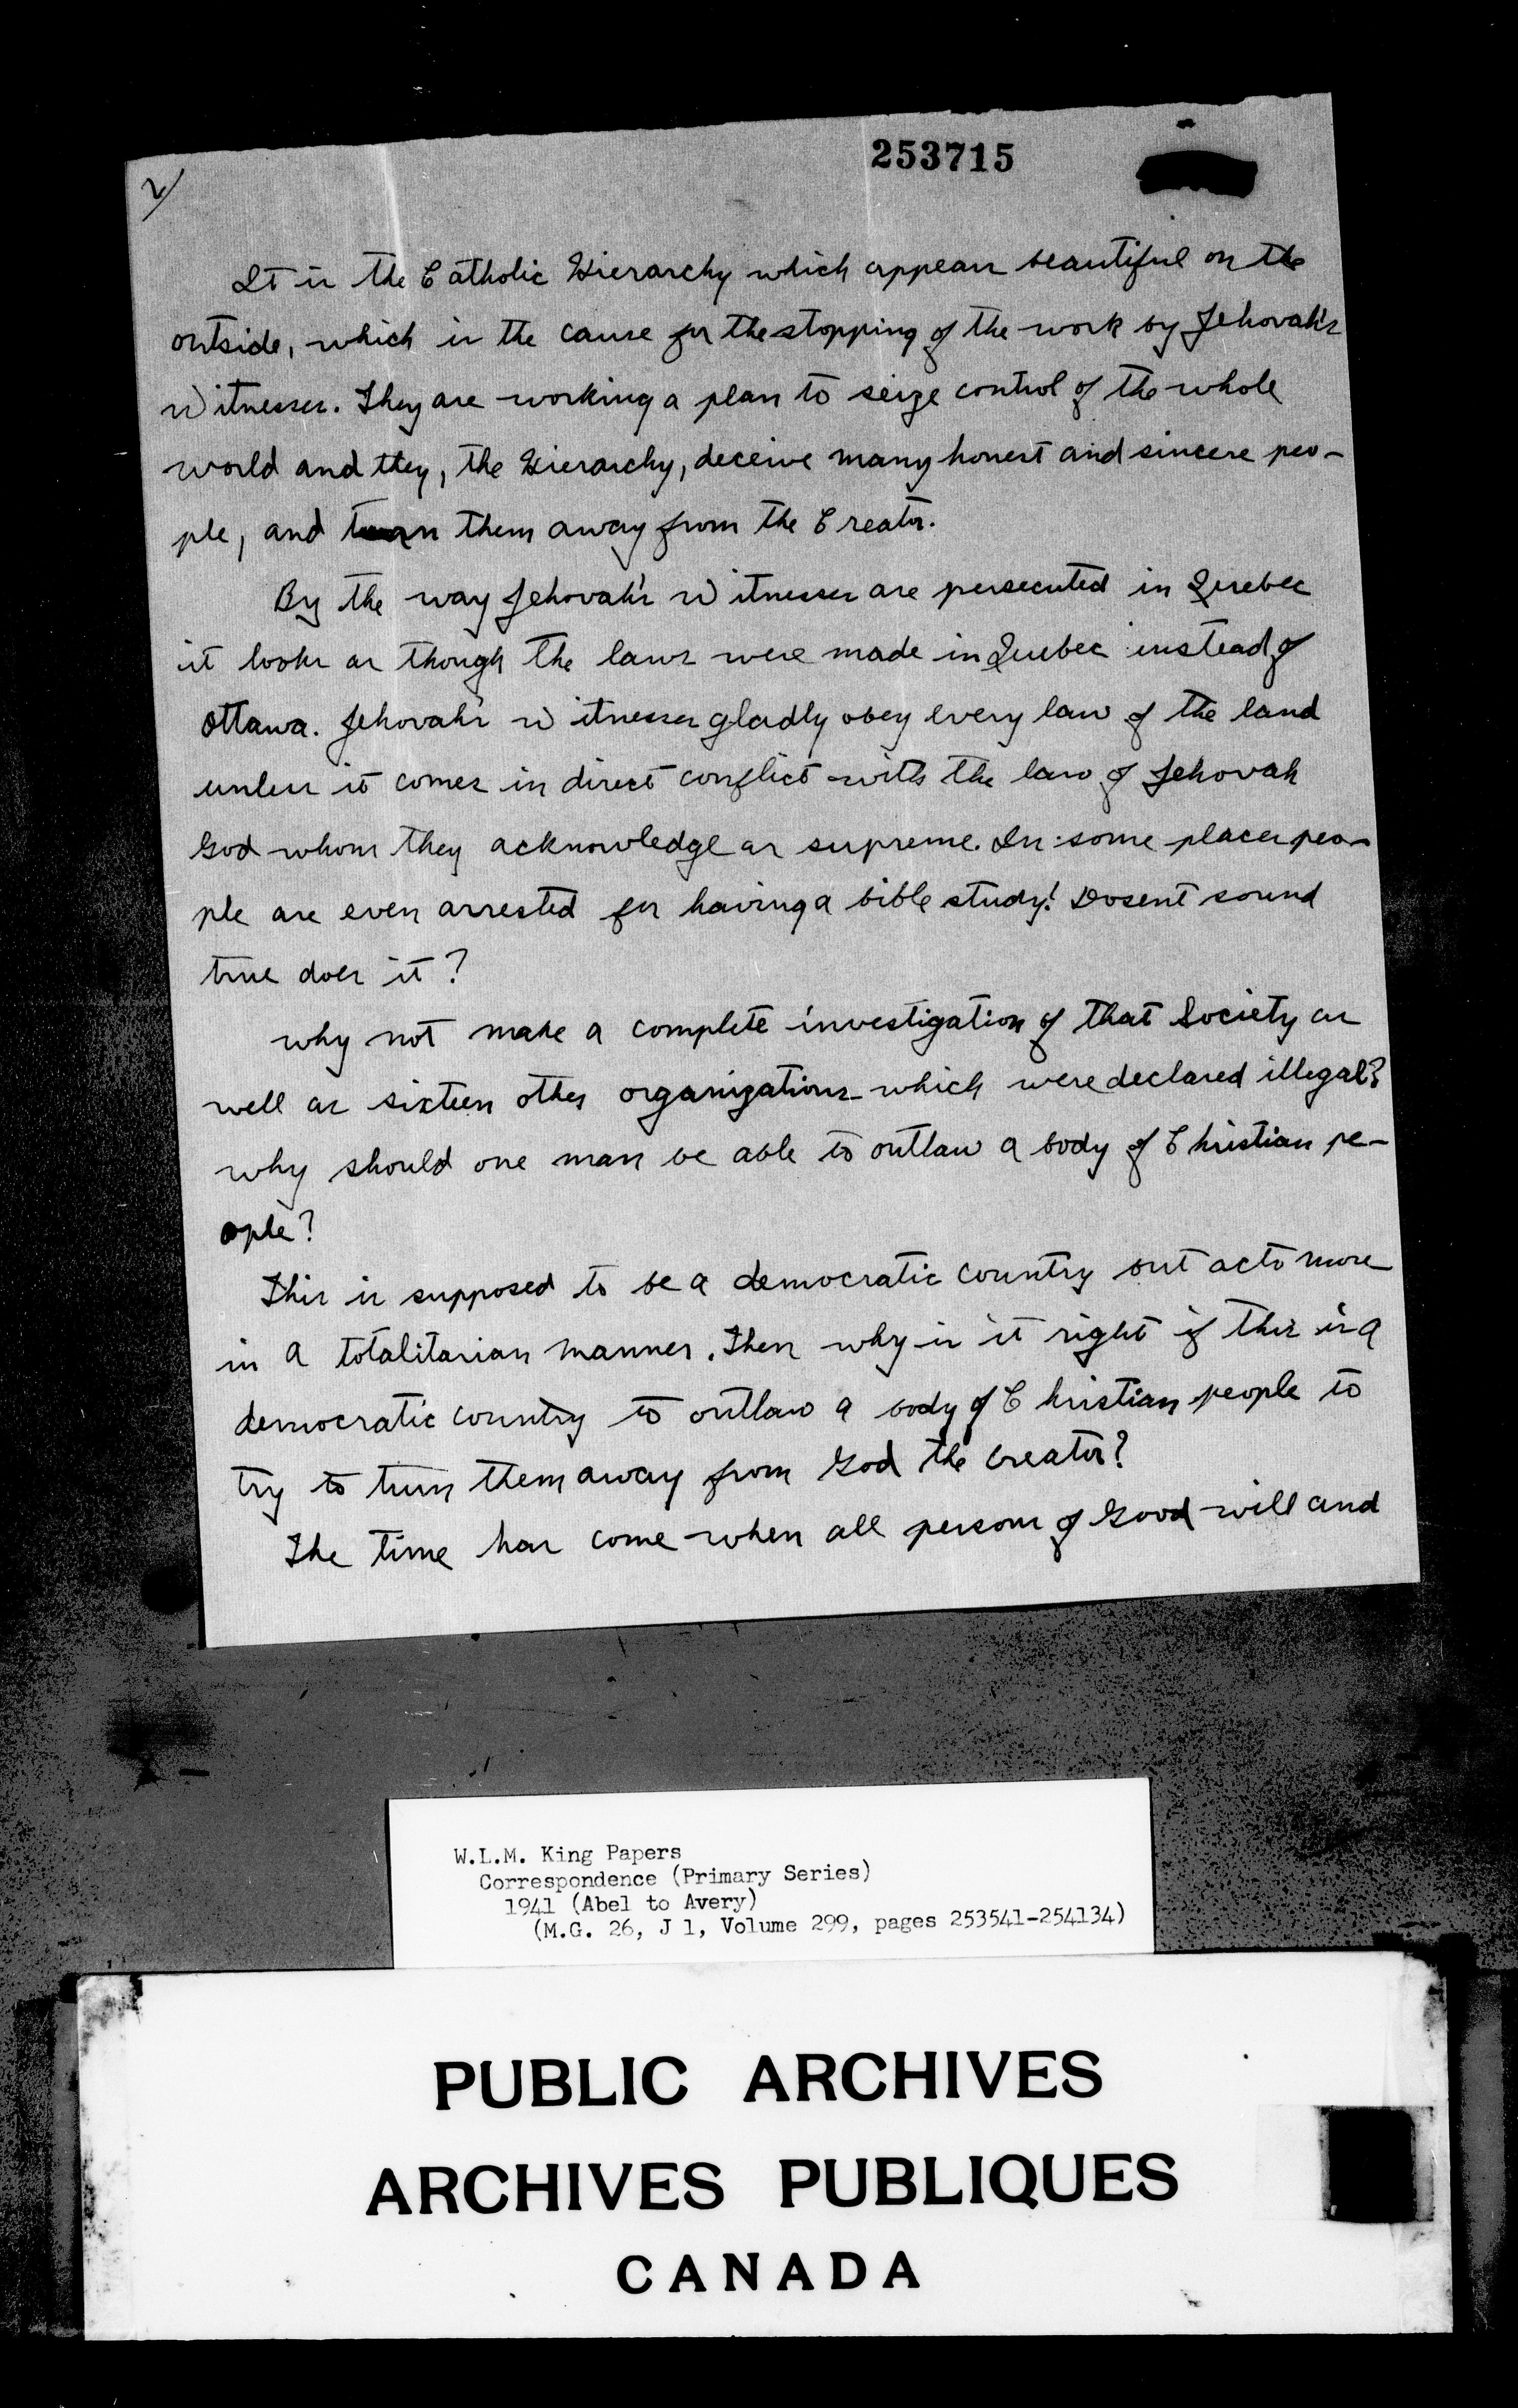 2/
253715
It is the Catholic Hierarchy which appears beautiful on the
outside, which is the cause for the stopping of the work by Jehovah's
Witnesses. They are working a plan to seize control of the whole
world and they, the Hierarchy, deceive many honest and sincere peo-
ple, and turn them away from the Creator.
By the way Jehovah's Witnesses are persecuted in Quebec
it looks as though the laws were made in Quebec instead of
Ottawa. Jehovah's Witnesses gladly obey every law of the land
unless it comes in direct conflict with the law of Jehovah
God whom they acknowledge as supreme. In some places peo-
ple are even arrested for having a bible study! Dosent sound
true does it?
why not make a complete investigation of that Society as
well as sixteen other organizations which were declared illegal?
why should one man be able to outlaw a body of Christian pe-
ople?
This is supposed to be a democratic country but acts more
in a totalitarian manner. Then why is it right if this is a
democratic country to outlaw a body of Christian people to
try to turn them away from God the Creator?
The time has come when all persons of Good-will and
W.L.M. King Papers
Correspondence (Primary Series)
1941 (Abel to Avery)
(M.G. 26, J 1, Volume 299, pages 253541-254134)
PUBLIC ARCHIVES
ARCHIVES PUBLIQUES
CANADA